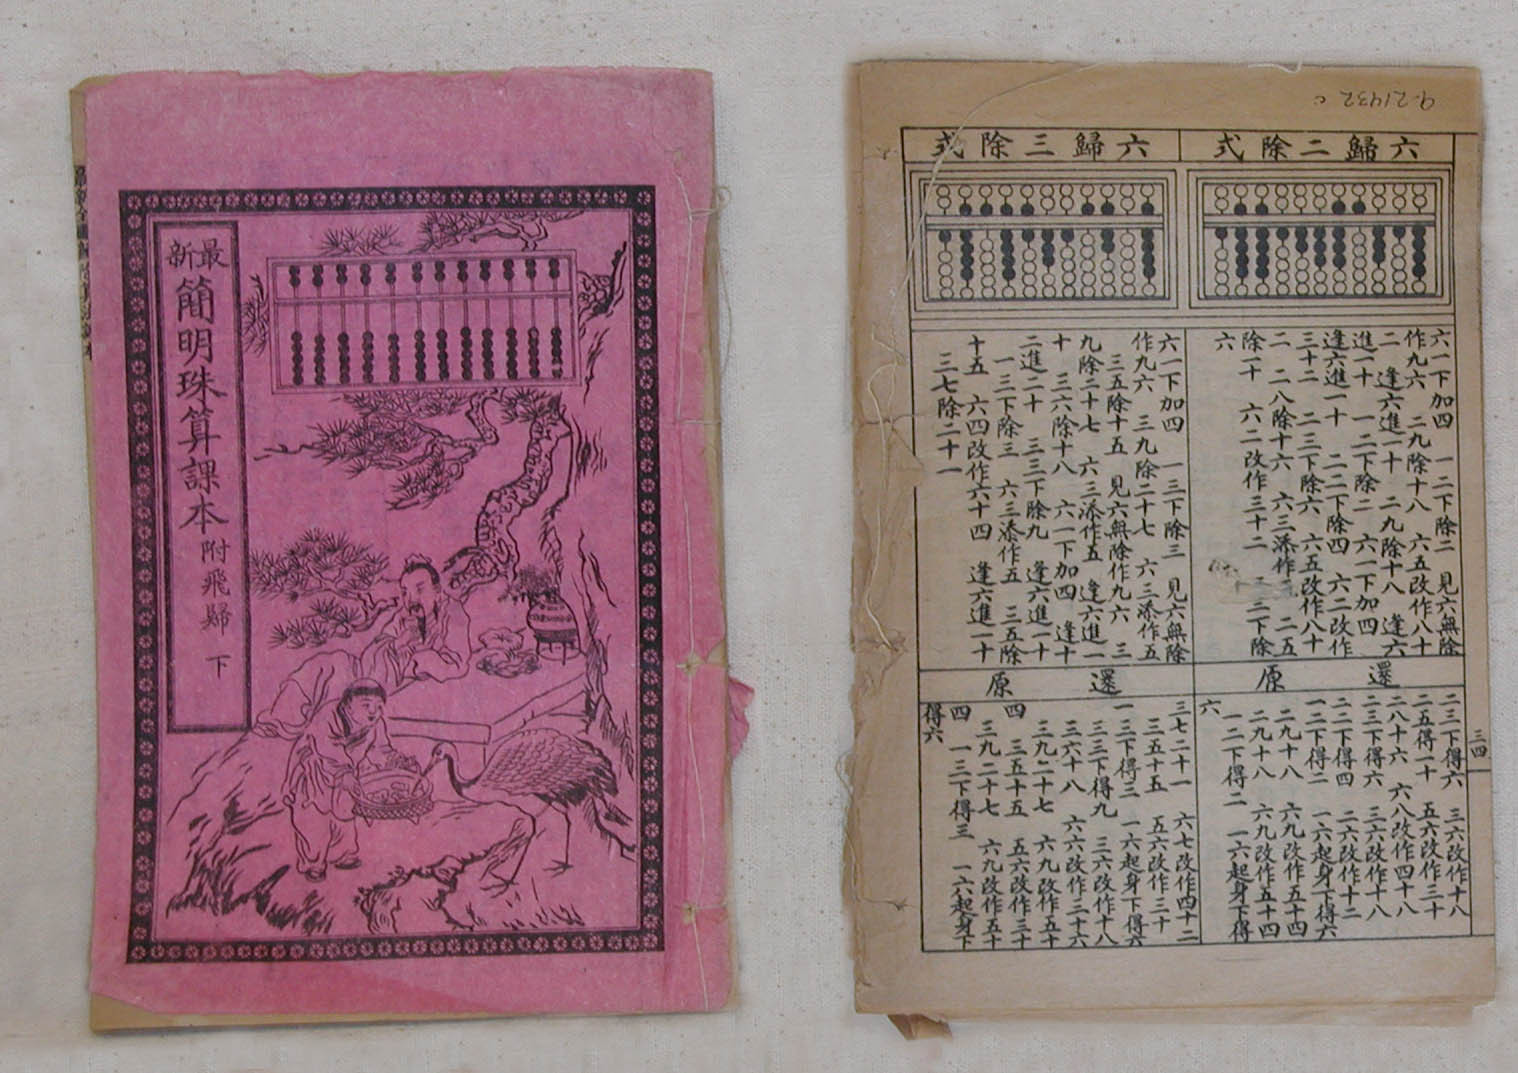 最新
簡明珠算課本
附飛歸
下
9-21432 c
六歸二除式
六歸三除式
六一下加四　一二下除二　見六無除
作九六　二九除十八　六五改作八十
二　逢六進一十　二九除十八　逢六
進一十　一二下除二　六一下加四
逢六進一十　二二下除四　六二改作
三十二　二三下除六　六五改作八十
二　二八除十六　六三添作　二五
除一十　六二改作三十二　二下除
六
六一下加四　一三下除三　見六無除
作九六　三九除二十七　六三添作五
三五除十五　見六無除作九六　三
九除二十七　六三添作五　逢六進一
十　三六除十八　六一下加四　逢十
二進二十　三三下除九　逢六進一十
一三下除三　六三添作五　三五除
十五　六四改作六十四　逢六進一十
三七除二十一
還原
還原
二三下得六　三六改作十八
二五得一十　五六改作三十
二八十六　六八改作四十八
二三下得六　三六改作十八
二二下得四　二六改作十二
一二下得二　一六起身下得六
二九十八　六九改作五十四
二九十八　六九改作五十四
一二下得二　一六起身下得
六
三七二十一　六七改作四十二
三五十五　五六改作三十
一三下得三　一六起身下得六
三三下得九　三六改作十八
三六十八　六六改作三十六
三九二十七　六九改作五十
四
三五十五　五六改作三十
三九二十七　六九改作五十
四
一三下得三　一六起身下
得六
三四